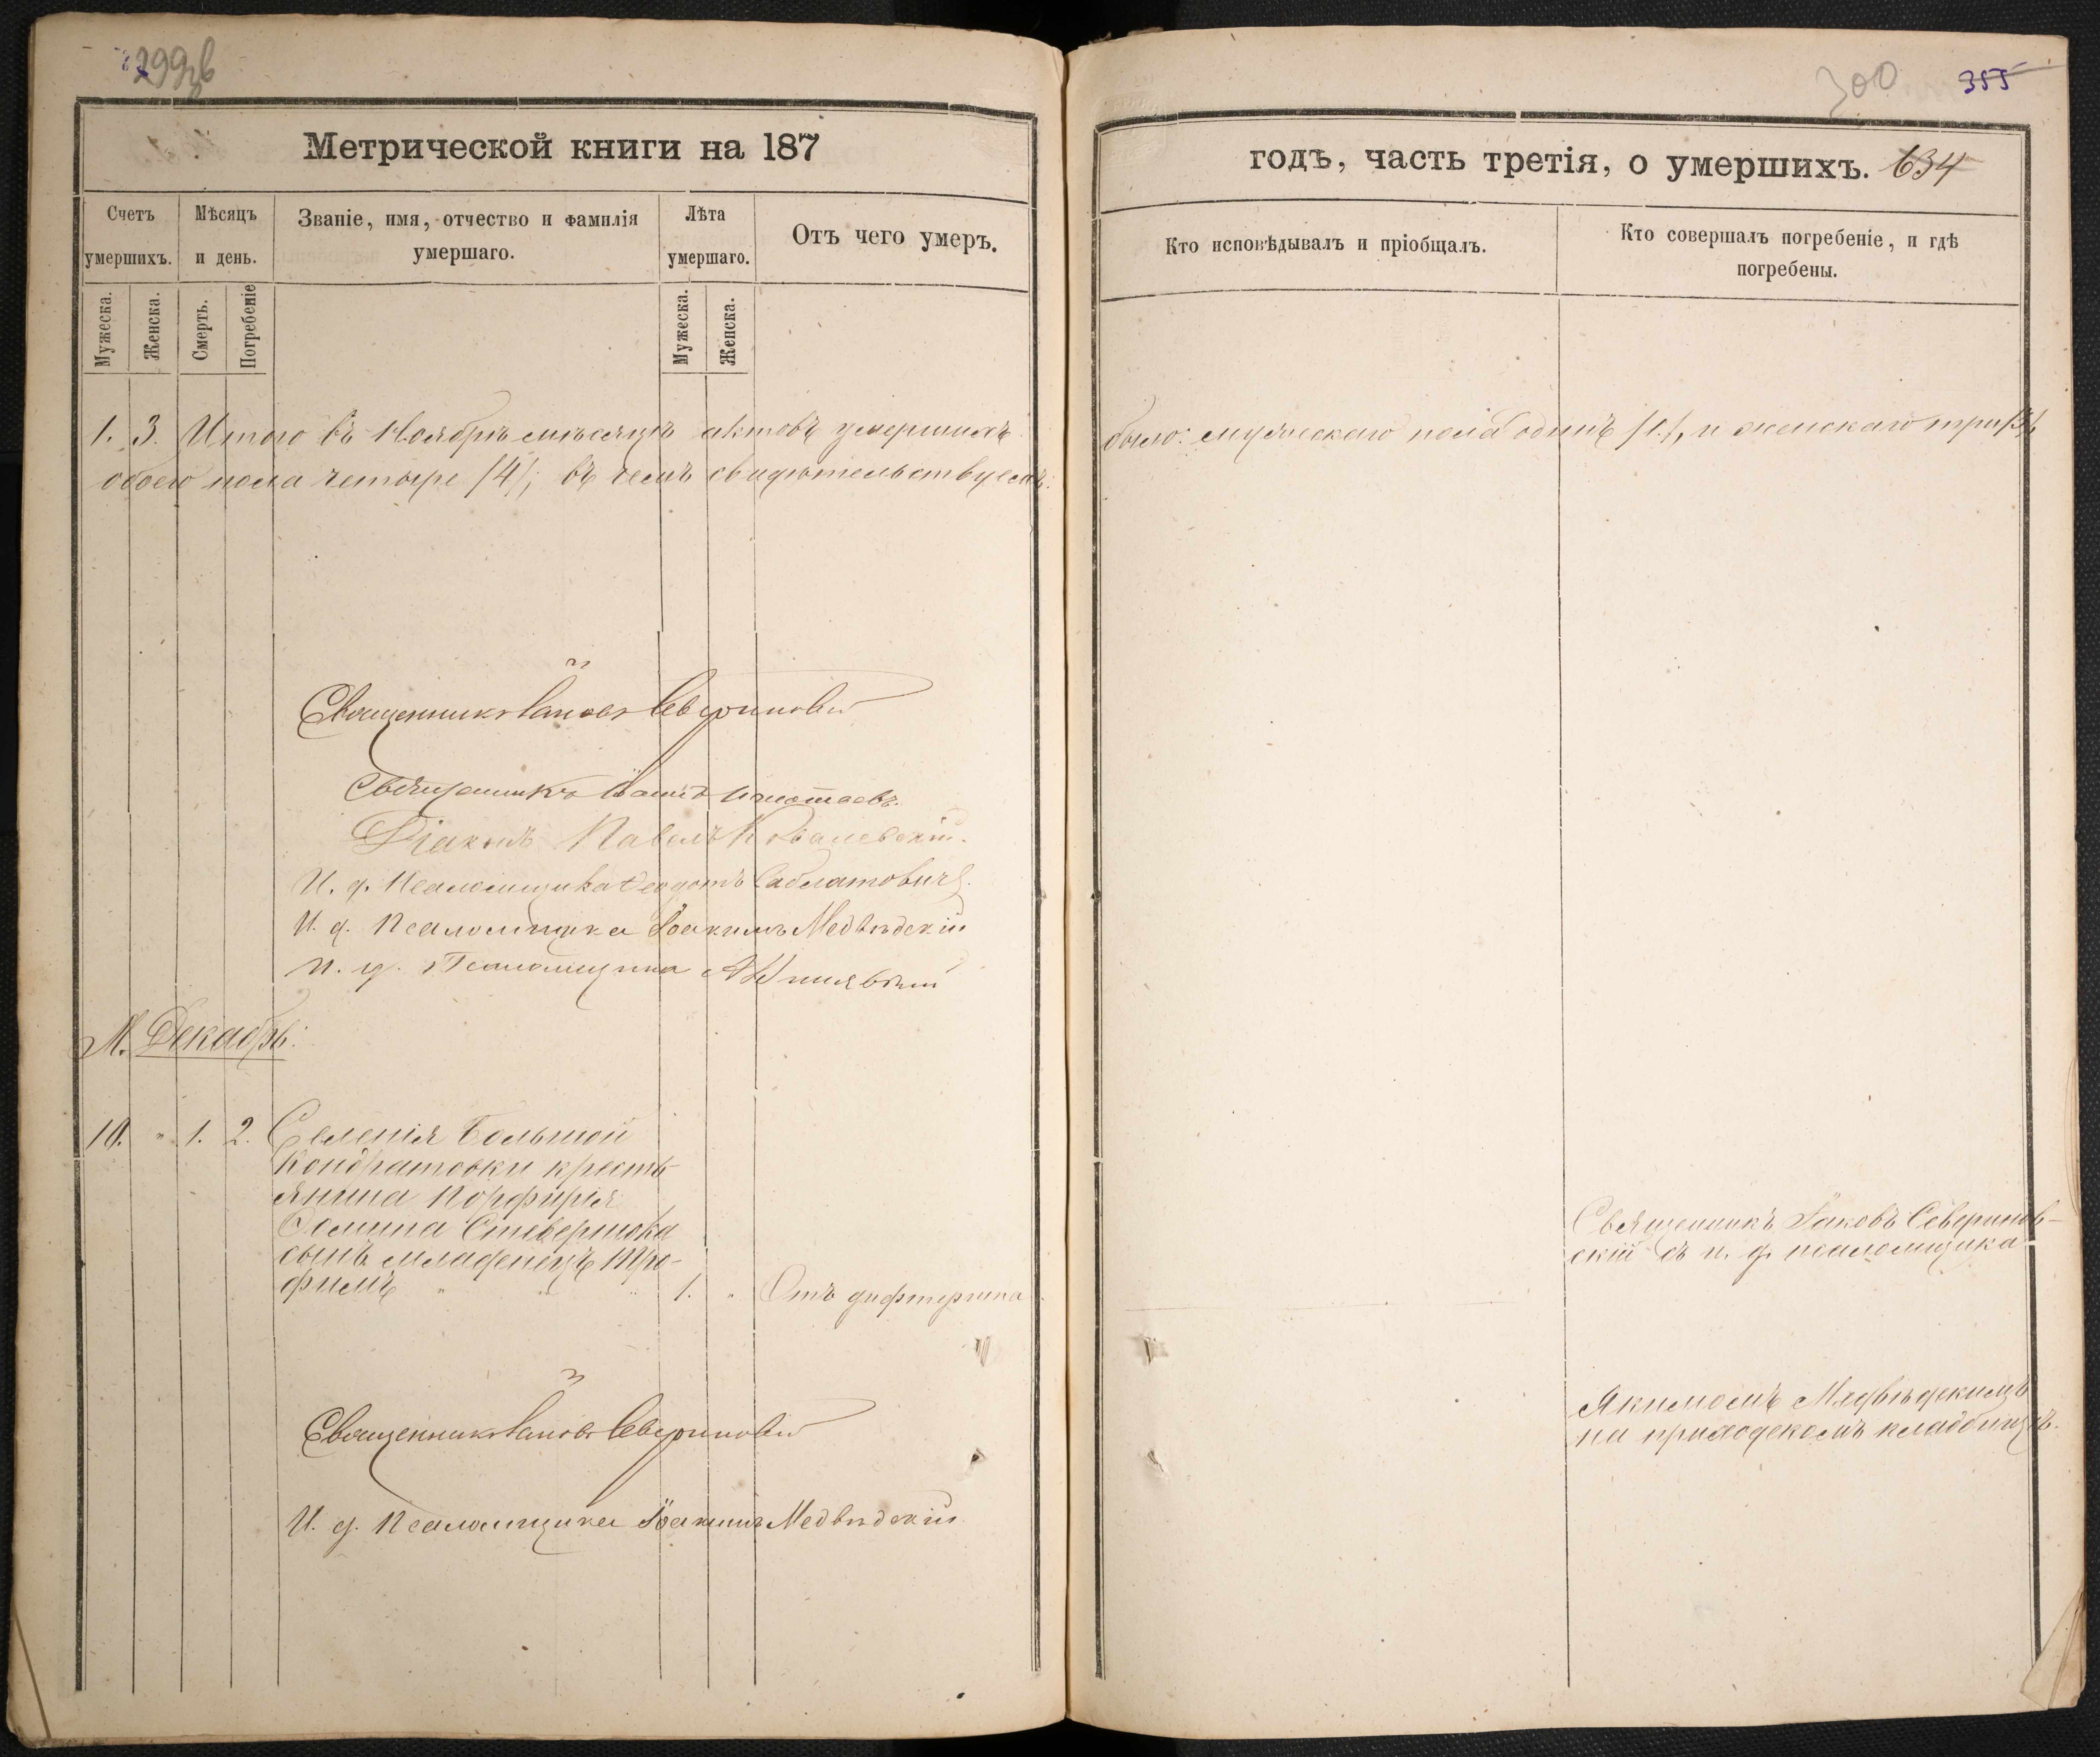 299об
300
355
Метрической книги на 187
годъ, часть третія, о умершихъ. 634
Счетъ умершихъ.
Мѣсяцъ и день.
Званіе, имя, отчество и фамилія умершаго.
Лѣта умершаго.
Отъ чего умеръ.
Кто исповѣдывалъ и пріобщалъ.
Кто совершалъ погребеніе, и гдѣ погребены.
Мужеска.
Женска.
Смерть.
Погребеніе
Мужеска.
Женска.
1. 3. Итого въ Ноябрѣ мѣсяцѣ актовъ умершихъ было: мужескаго пола одинъ /1./, и женскаго три /3/,
обоего пола четыре /4/; въ чемъ свидѣтельствуемъ:
Священникъ Іаковъ Севериновскій
Священникъ Игнатаевъ.
Діаконъ Павелъ Ковалевскій.
И. д. Псаломщика Феодотъ Саблатовичъ.
И. д. Псаломщика Іоакимъ Медвѣдскій
И. д. Псаломщика
М. Декабрь:
10. " 1. 2. Селенія Большой
Кондратовки кресть-
янина Порфирія
Сомина Стевертока
сынъ младенецъ Тро-
фимъ " " " 1. " Отъ дифтерита
Священникъ Іаковъ Северинов-
скій съ и. д. псаломщика
Якимомъ Медвѣдскимъ
на приходскомъ кладбищѣ.
Священникъ Іаковъ Севериновскій
И. д. Псаломщика Іоакимъ Медвѣдскій